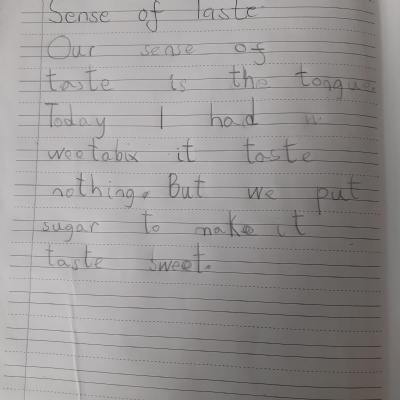 Sense of taste
Our sense of
taste is the tongue.
Today I had
weetabix it taste
nothing. But we put
sugar to make it
taste sweet.